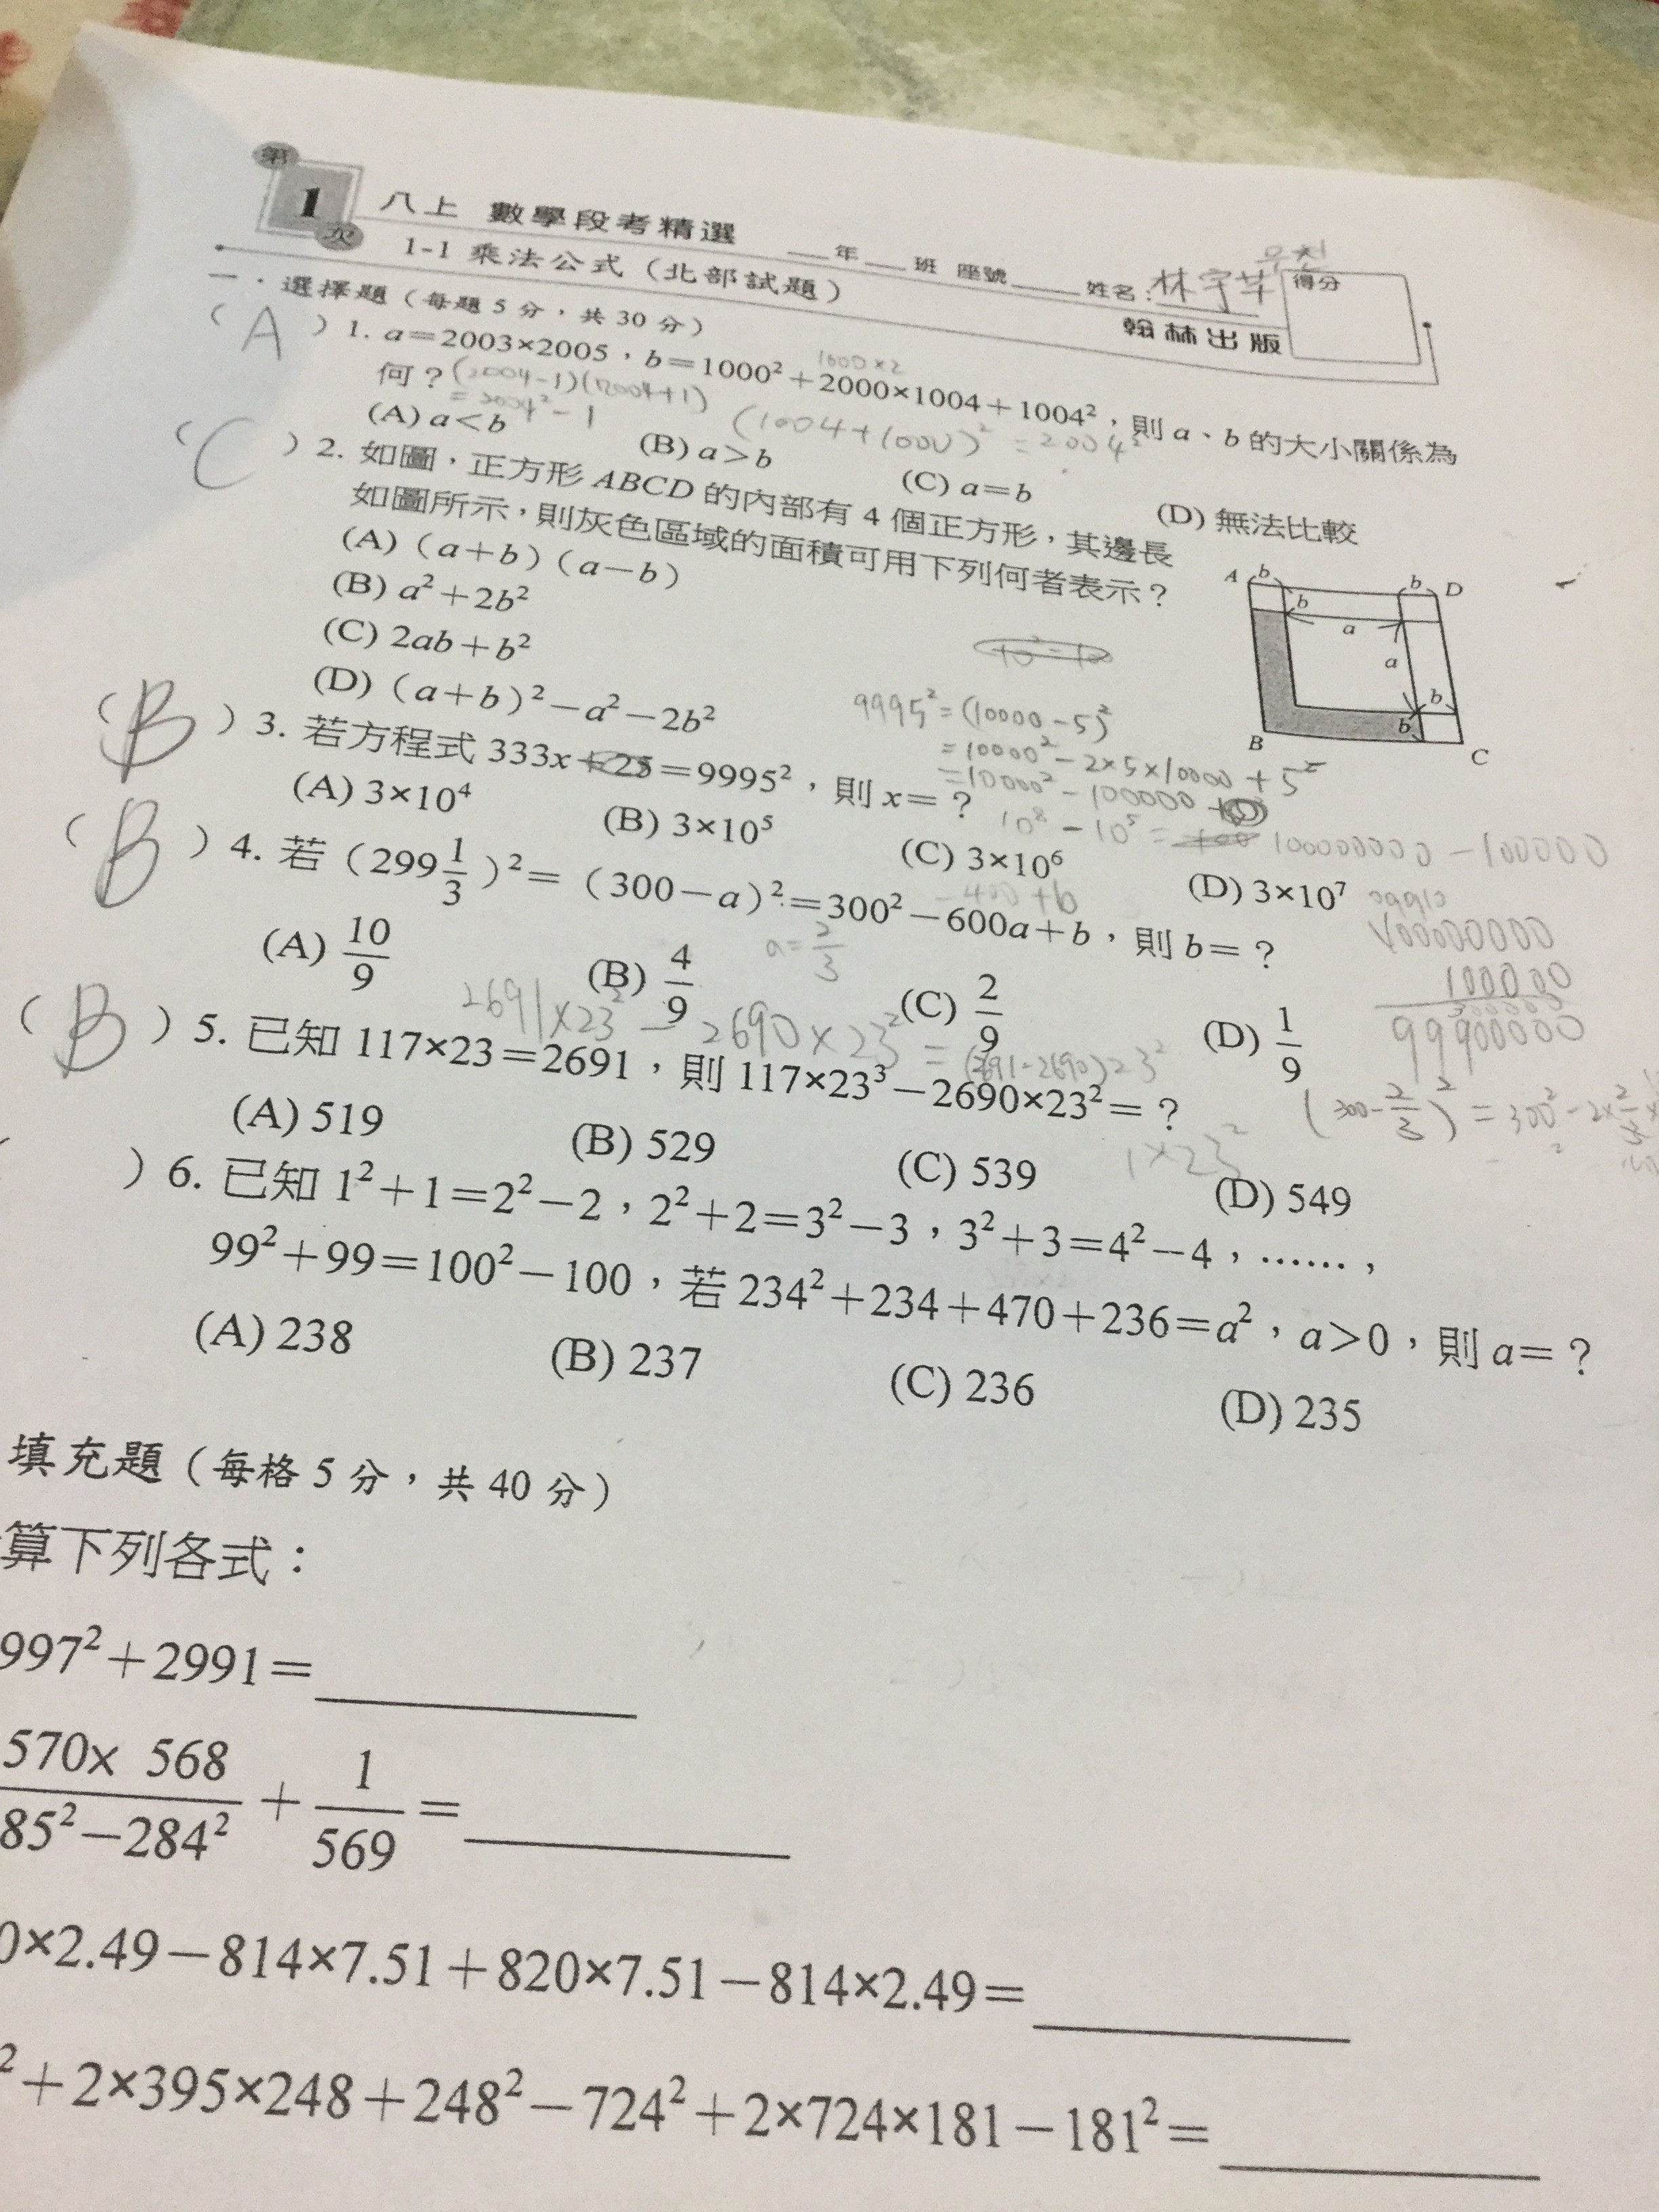 第1次 八上 數學段考精選 ___年___班 座號_____ 姓名:林宇芊 得分
1-1 乘法公式(北部試題) 翰林出版
一.選擇題(每題5分,共30分)
(A)1. a=2003×2005,b=1000²+2000×1004+1004²,則a、b的大小關係為
1000×2
何?(2004-1)(2004+1)
=2004²-1
(1004+1000)²=2004²
(A) a<b (B) a>b (C) a=b (D) 無法比較
(C)2. 如圖,正方形ABCD的內部有4個正方形,其邊長
如圖所示,則灰色區域的面積可用下列何者表示?
(A)(a+b)(a-b)
(B) a²+2b²
(C) 2ab+b²
(D)(a+b)²-a²-2b²
A b b D
b a
a
b
B b C
9995²=(10000-5)²
=10000²-2×5×10000+5²
=10000²-100000
10⁸-10⁵= 100000000-100000
(B)3. 若方程式333x+25=9995²,則x=?
(A) 3×10⁴ (B) 3×10⁵ (C) 3×10⁶ (D) 3×10⁷
100000000
100000
99900000
(B)4. 若(299 1/3)²=(300-a)²=300²-600a+b,則b=?
-400+b
a=2/3
(A) 10/9 (B) 4/9 (C) 2/9 (D) 1/9
(300-2/3)²=300²-2×2/3
2691×23²-2690×23²=(2691-2690)23²
(B)5. 已知117×23=2691,則117×23³-2690×23²=?
1×23²
(A) 519 (B) 529 (C) 539 (D) 549
)6. 已知1²+1=2²-2,2²+2=3²-3,3²+3=4²-4,……,
99²+99=100²-100,若234²+234+470+236=a²,a>0,則a=?
(A) 238 (B) 237 (C) 236 (D) 235
填充題(每格5分,共40分)
算下列各式:
997²+2991=
570× 568/85²-284²+1/569=
0×2.49-814×7.51+820×7.51-814×2.49=
²+2×395×248+248²-724²+2×724×181-181²=